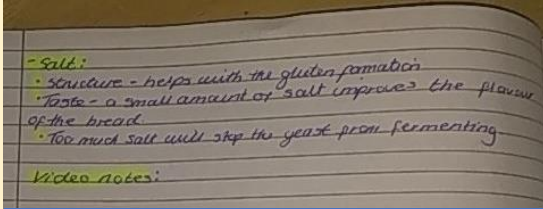 - Salt:
• Structure - helps with the gluten formation
• Taste - a small amount of salt improves the flavour
of the bread.
• Too much salt will stop the yeast from fermenting.
Video notes: